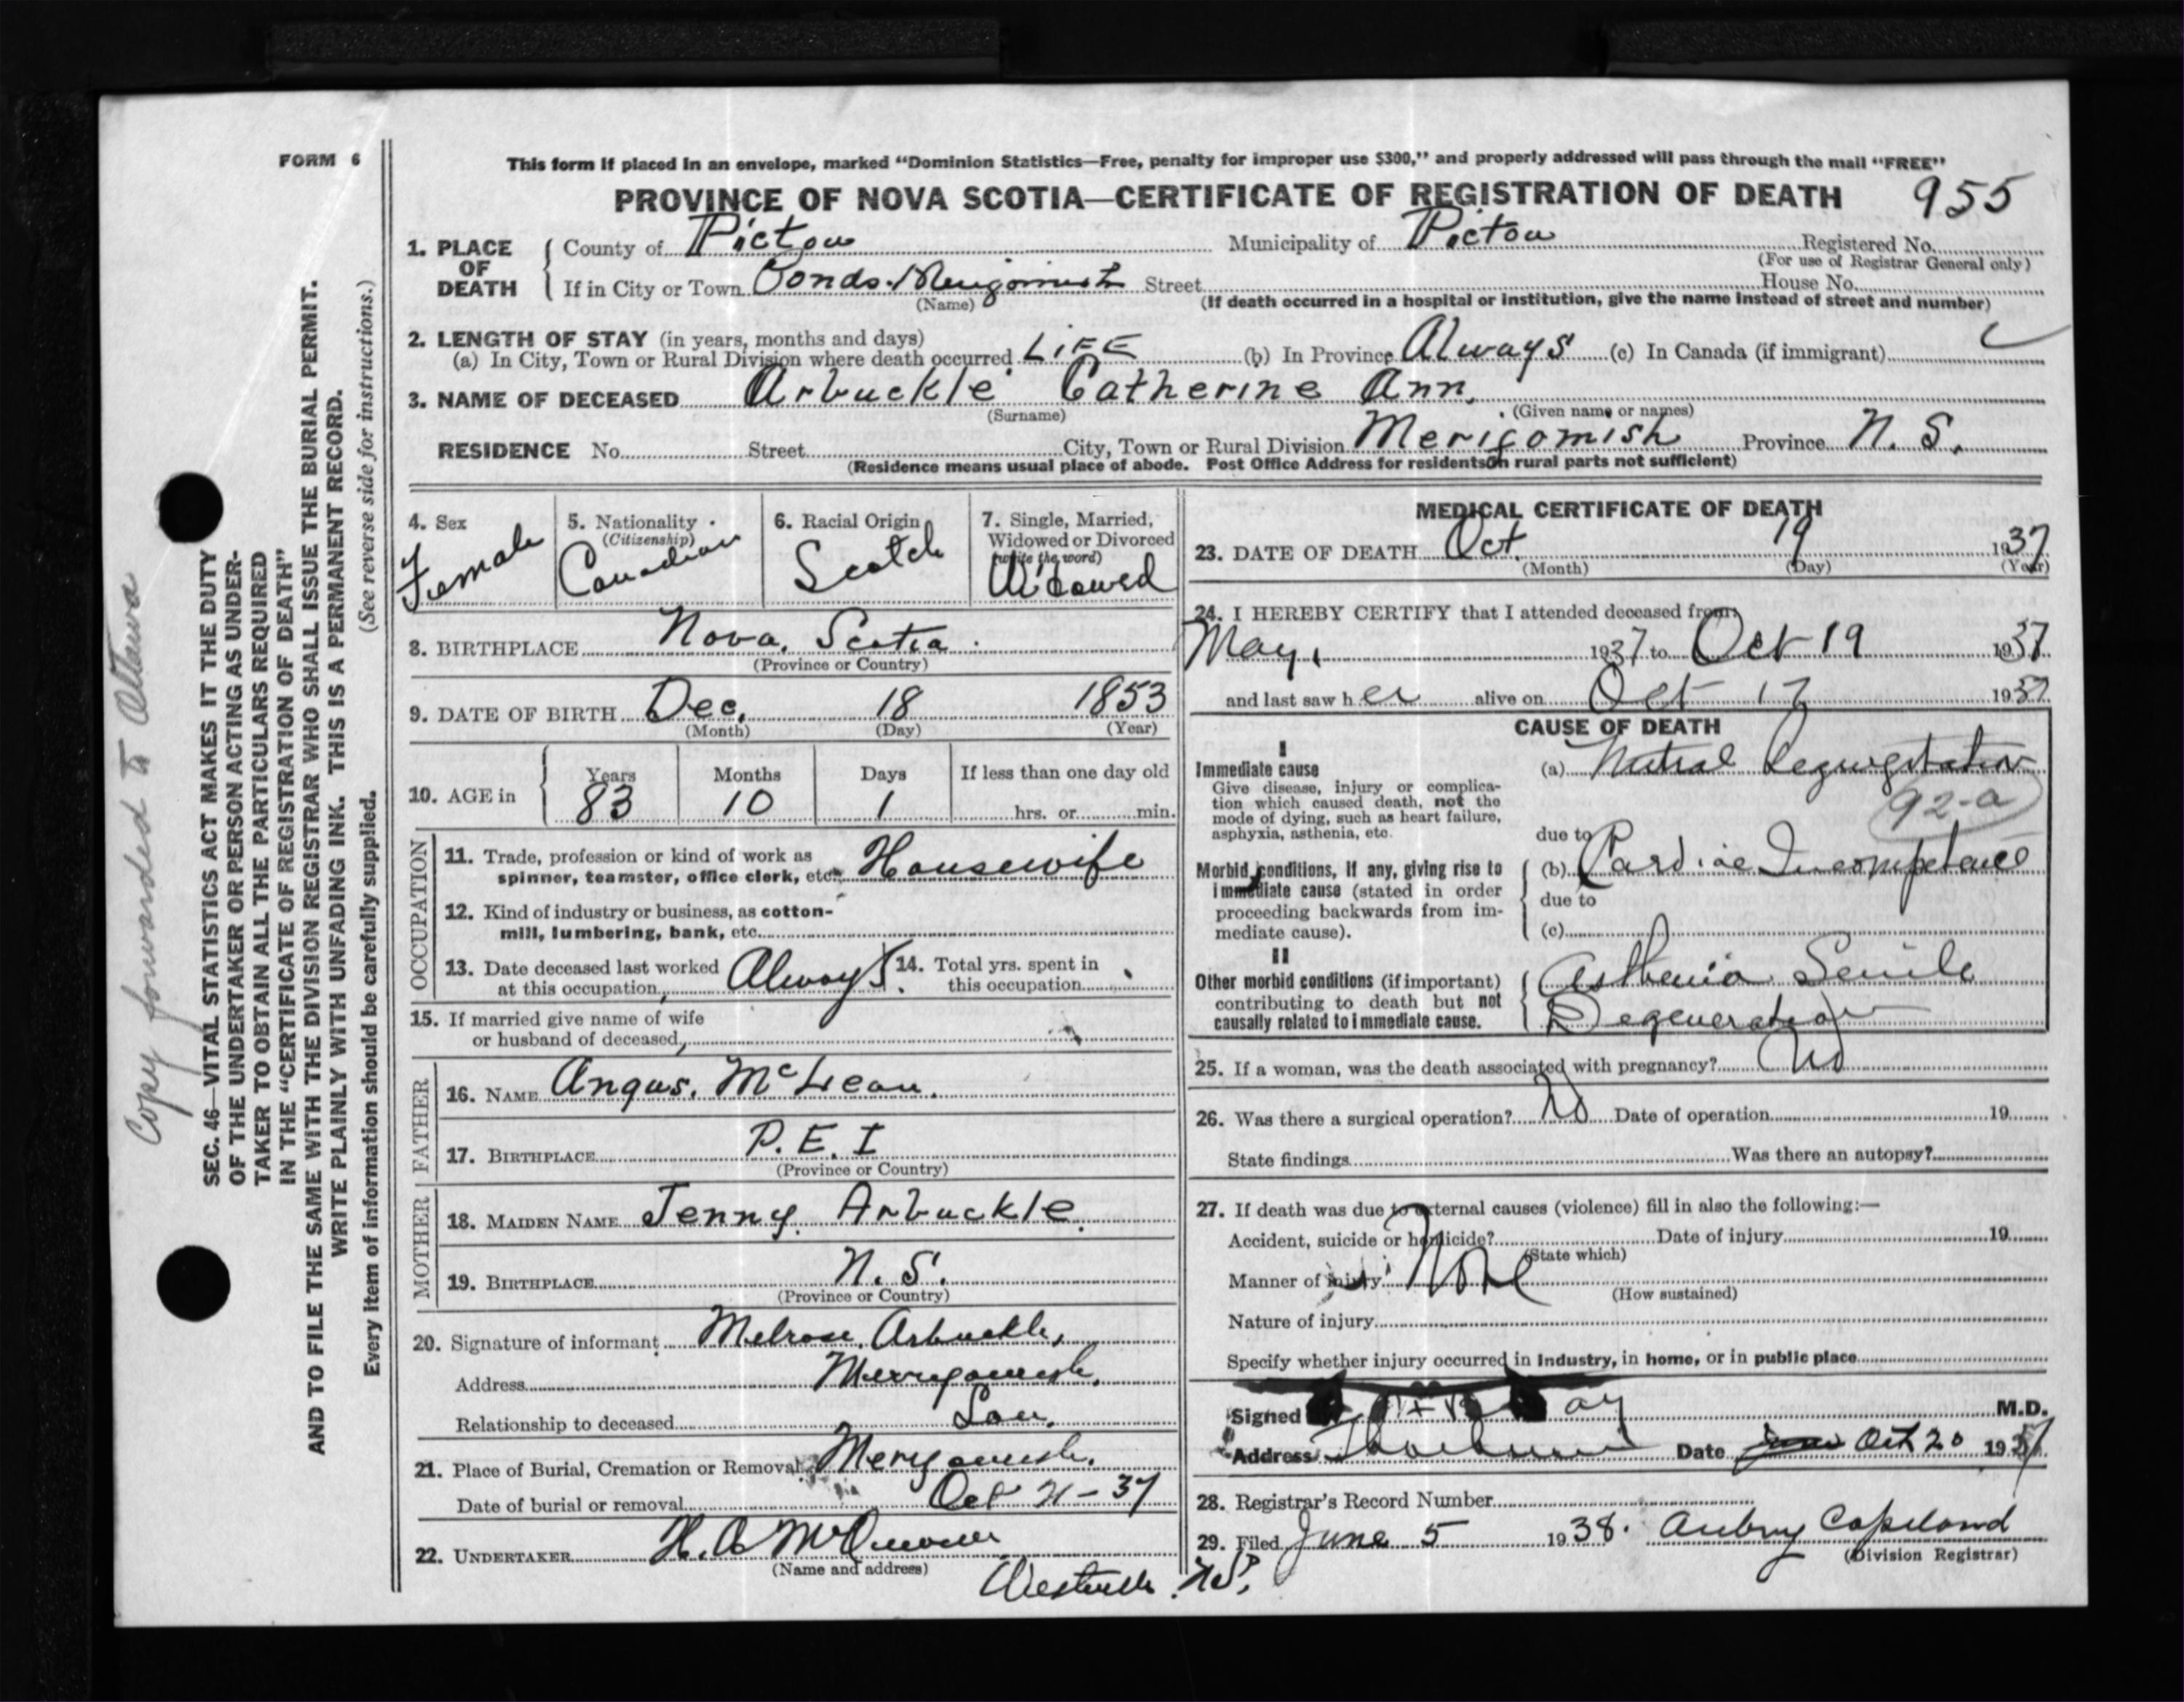 FORM 6
This form if placed in an envelope, marked “Dominion Statistics—Free, penalty for improper use $300,” and properly addressed will pass through the mail “FREE”
PROVINCE OF NOVA SCOTIA—CERTIFICATE OF REGISTRATION OF DEATH 955
1. PLACE OF DEATH County of Pictou Municipality of Pictou Registered No.
(For use of Registrar General only)
If in City or Town Ponds. Merigomish Street House No.
(Name) (If death occurred in a hospital or institution, give the name instead of street and number)
2. LENGTH OF STAY (in years, months and days)
(a) In City, Town or Rural Division where death occurred LIFE (b) In Province Always (c) In Canada (if immigrant)
3. NAME OF DECEASED Arbuckle Catherine Ann.
(Surname) (Given name or names)
RESIDENCE No. Street City, Town or Rural Division Merigomish Province N. S.
(Residence means usual place of abode. Post Office Address for residents in rural parts not sufficient)
4. Sex Female
5. Nationality (Citizenship) Canadian
6. Racial Origin Scotch
7. Single, Married, Widowed or Divorced (write the word) Widowed
8. BIRTHPLACE Nova. Scotia.
(Province or Country)
9. DATE OF BIRTH Dec. 18 1853
(Month) (Day) (Year)
10. AGE in Years Months Days If less than one day old
83 10 1 hrs. or min.
OCCUPATION
11. Trade, profession or kind of work as
spinner, teamster, office clerk, etc. Housewife
12. Kind of industry or business, as cotton-
mill, lumbering, bank, etc.
13. Date deceased last worked at this occupation Always. 14. Total yrs. spent in this occupation
15. If married give name of wife
or husband of deceased
FATHER
16. NAME Angus. McLean.
17. BIRTHPLACE P. E. I
(Province or Country)
MOTHER
18. MAIDEN NAME Jenny. Arbuckle.
19. BIRTHPLACE N. S.
(Province or Country)
20. Signature of informant Melrose Arbuckle,
Address Merrygomish.
Relationship to deceased Son.
21. Place of Burial, Cremation or Removal Merigomish.
Date of burial or removal Oct 21-37
22. UNDERTAKER H. A
(Name and address)
Westville. N.S.
MEDICAL CERTIFICATE OF DEATH
23. DATE OF DEATH Oct. 19 1937
(Month) (Day) (Year)
24. I HEREBY CERTIFY that I attended deceased from:
May, 1937 to Oct 19 1937
and last saw h er alive on Oct 17 1937
CAUSE OF DEATH
I
Immediate cause
Give disease, injury or complica-
tion which caused death, not the
mode of dying, such as heart failure,
asphyxia, asthenia, etc.
(a) Mitral Regurgitation
92-a
due to
Morbid conditions, if any, giving rise to
immediate cause (stated in order
proceeding backwards from im-
mediate cause).
(b) Cardiac Incompetence
due to
(c)
II
Other morbid conditions (if important)
contributing to death but not
causally related to immediate cause.
Asthenia Senile
Degeneration
25. If a woman, was the death associated with pregnancy? No
26. Was there a surgical operation? No Date of operation 19
State findings Was there an autopsy?
27. If death was due to external causes (violence) fill in also the following:—
Accident, suicide or homicide? Date of injury 19
(State which)
Manner of injury None
(How sustained)
Nature of injury
Specify whether injury occurred in industry, in home, or in public place
Signed M.D.
Address Thorburn Date Oct 20 1937
28. Registrar's Record Number
29. Filed June 5 1938. Aubrey Copeland
(Division Registrar)
Copy forwarded to Ottawa
SEC. 46—VITAL STATISTICS ACT MAKES IT THE DUTY
OF THE UNDERTAKER OR PERSON ACTING AS UNDER-
TAKER TO OBTAIN ALL THE PARTICULARS REQUIRED
IN THE “CERTIFICATE OF REGISTRATION OF DEATH”
AND TO FILE THE SAME WITH THE DIVISION REGISTRAR WHO SHALL ISSUE THE BURIAL PERMIT.
WRITE PLAINLY WITH UNFADING INK. THIS IS A PERMANENT RECORD.
(See reverse side for instructions.)
Every item of information should be carefully supplied.